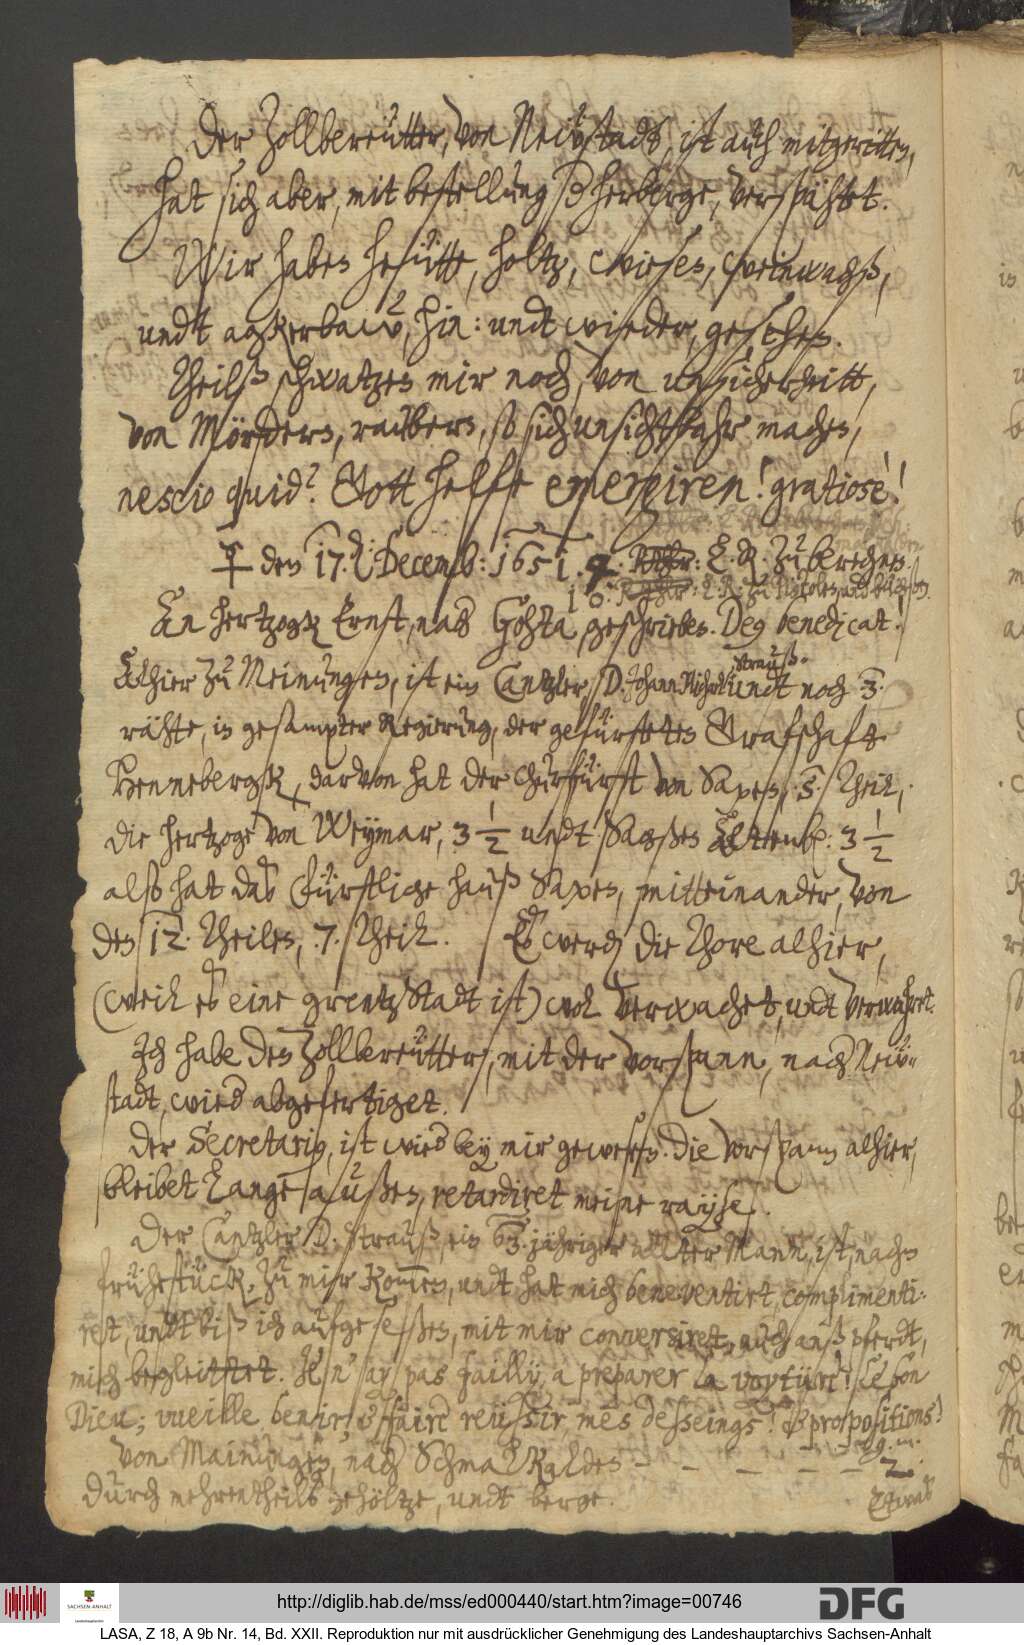 Der Zollbereütter, von Neüstadt, ist auch mitgeritten,
hat sich aber, mit bestellung der herberge, verspähtet.
Wir haben heütte, holtz, wiesen, weinwachß,
undt agkerbaw, hin: undt wieder, gesehen.
Theilß schwatzen mir noch, von unsicherheitt,
von Mördern, raübern, so sich unsichtbahr machen,
nescio quid? Gott helffe emergiren! gratiose!
den 17. Decemb: 1651.
An hertzogk Ernst, nacher Gohta, geschrieben. Deus benedicat!
Alhier zu Meinungen, ist ein Cantzler, D. Johann Strauß. undt noch 3.
rähte, in gesampter Regierung, der gefürsteten Graffschafft
Hennebergk, darvon hat der Churfürst von Saxen, 5. Theil,
die hertzoge von Weymar, 3 1/2 undt Sachßen Altenb: 3 1/2
alß hat das Fürstliche hauß Saxen, mitteinander, von
den 12. Theilen, 7. Theil. Es werden die Thore alhier,
(weil es eine grentzStadt ist) wol verwachet, undt verwahret.
Jch habe den Zollbereütter, mit der vorspann, nach Neü-
stadt, wieder abgefertiget.
Der Secretarius, ist wieder bey mir gewesen. Die vorspann alhier,
bleibet lange außen, retardiret meine rayse.
Der Cantzler D. Strauß, ein 63. jähriger allter Mann, ist, nachm
frühestück, zu mir kommen, undt hat mich beneventirt, complimenti-
ret, undt biß ich aufgeseßen, mit mir conversiret, auch anß pferdt,
mich begleittet. Je n'ay pas failly, a preparer la voyture! Ce bon
Dieu; vueille benir, & faire reüssir, mes desseings! & propositions!
Von Mainungen, nach Schmalkalden – – – – – 2.
durch mehrentheilß gehöltze, undt berge.
Etwaß
http://diglib.hab.de/mss/ed000440/start.htm?image=00746
SACHSEN-ANHALT
Landeshauptarchiv
DFG
LASA, Z 18, A 9b Nr. 14, Bd. XXII. Reproduktion nur mit ausdrücklicher Genehmigung des Landeshauptarchivs Sachsen-Anhalt